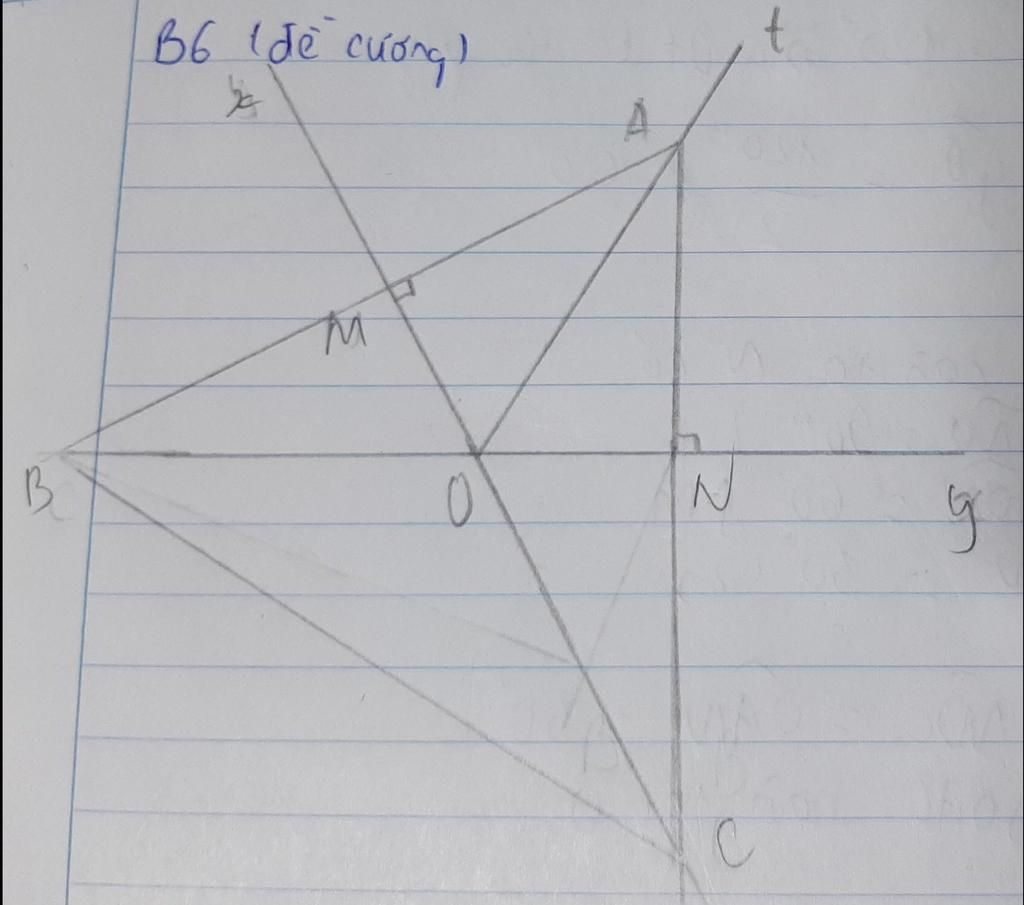 B6 (đề cương)
x
t
A
M
B
O
N
y
C